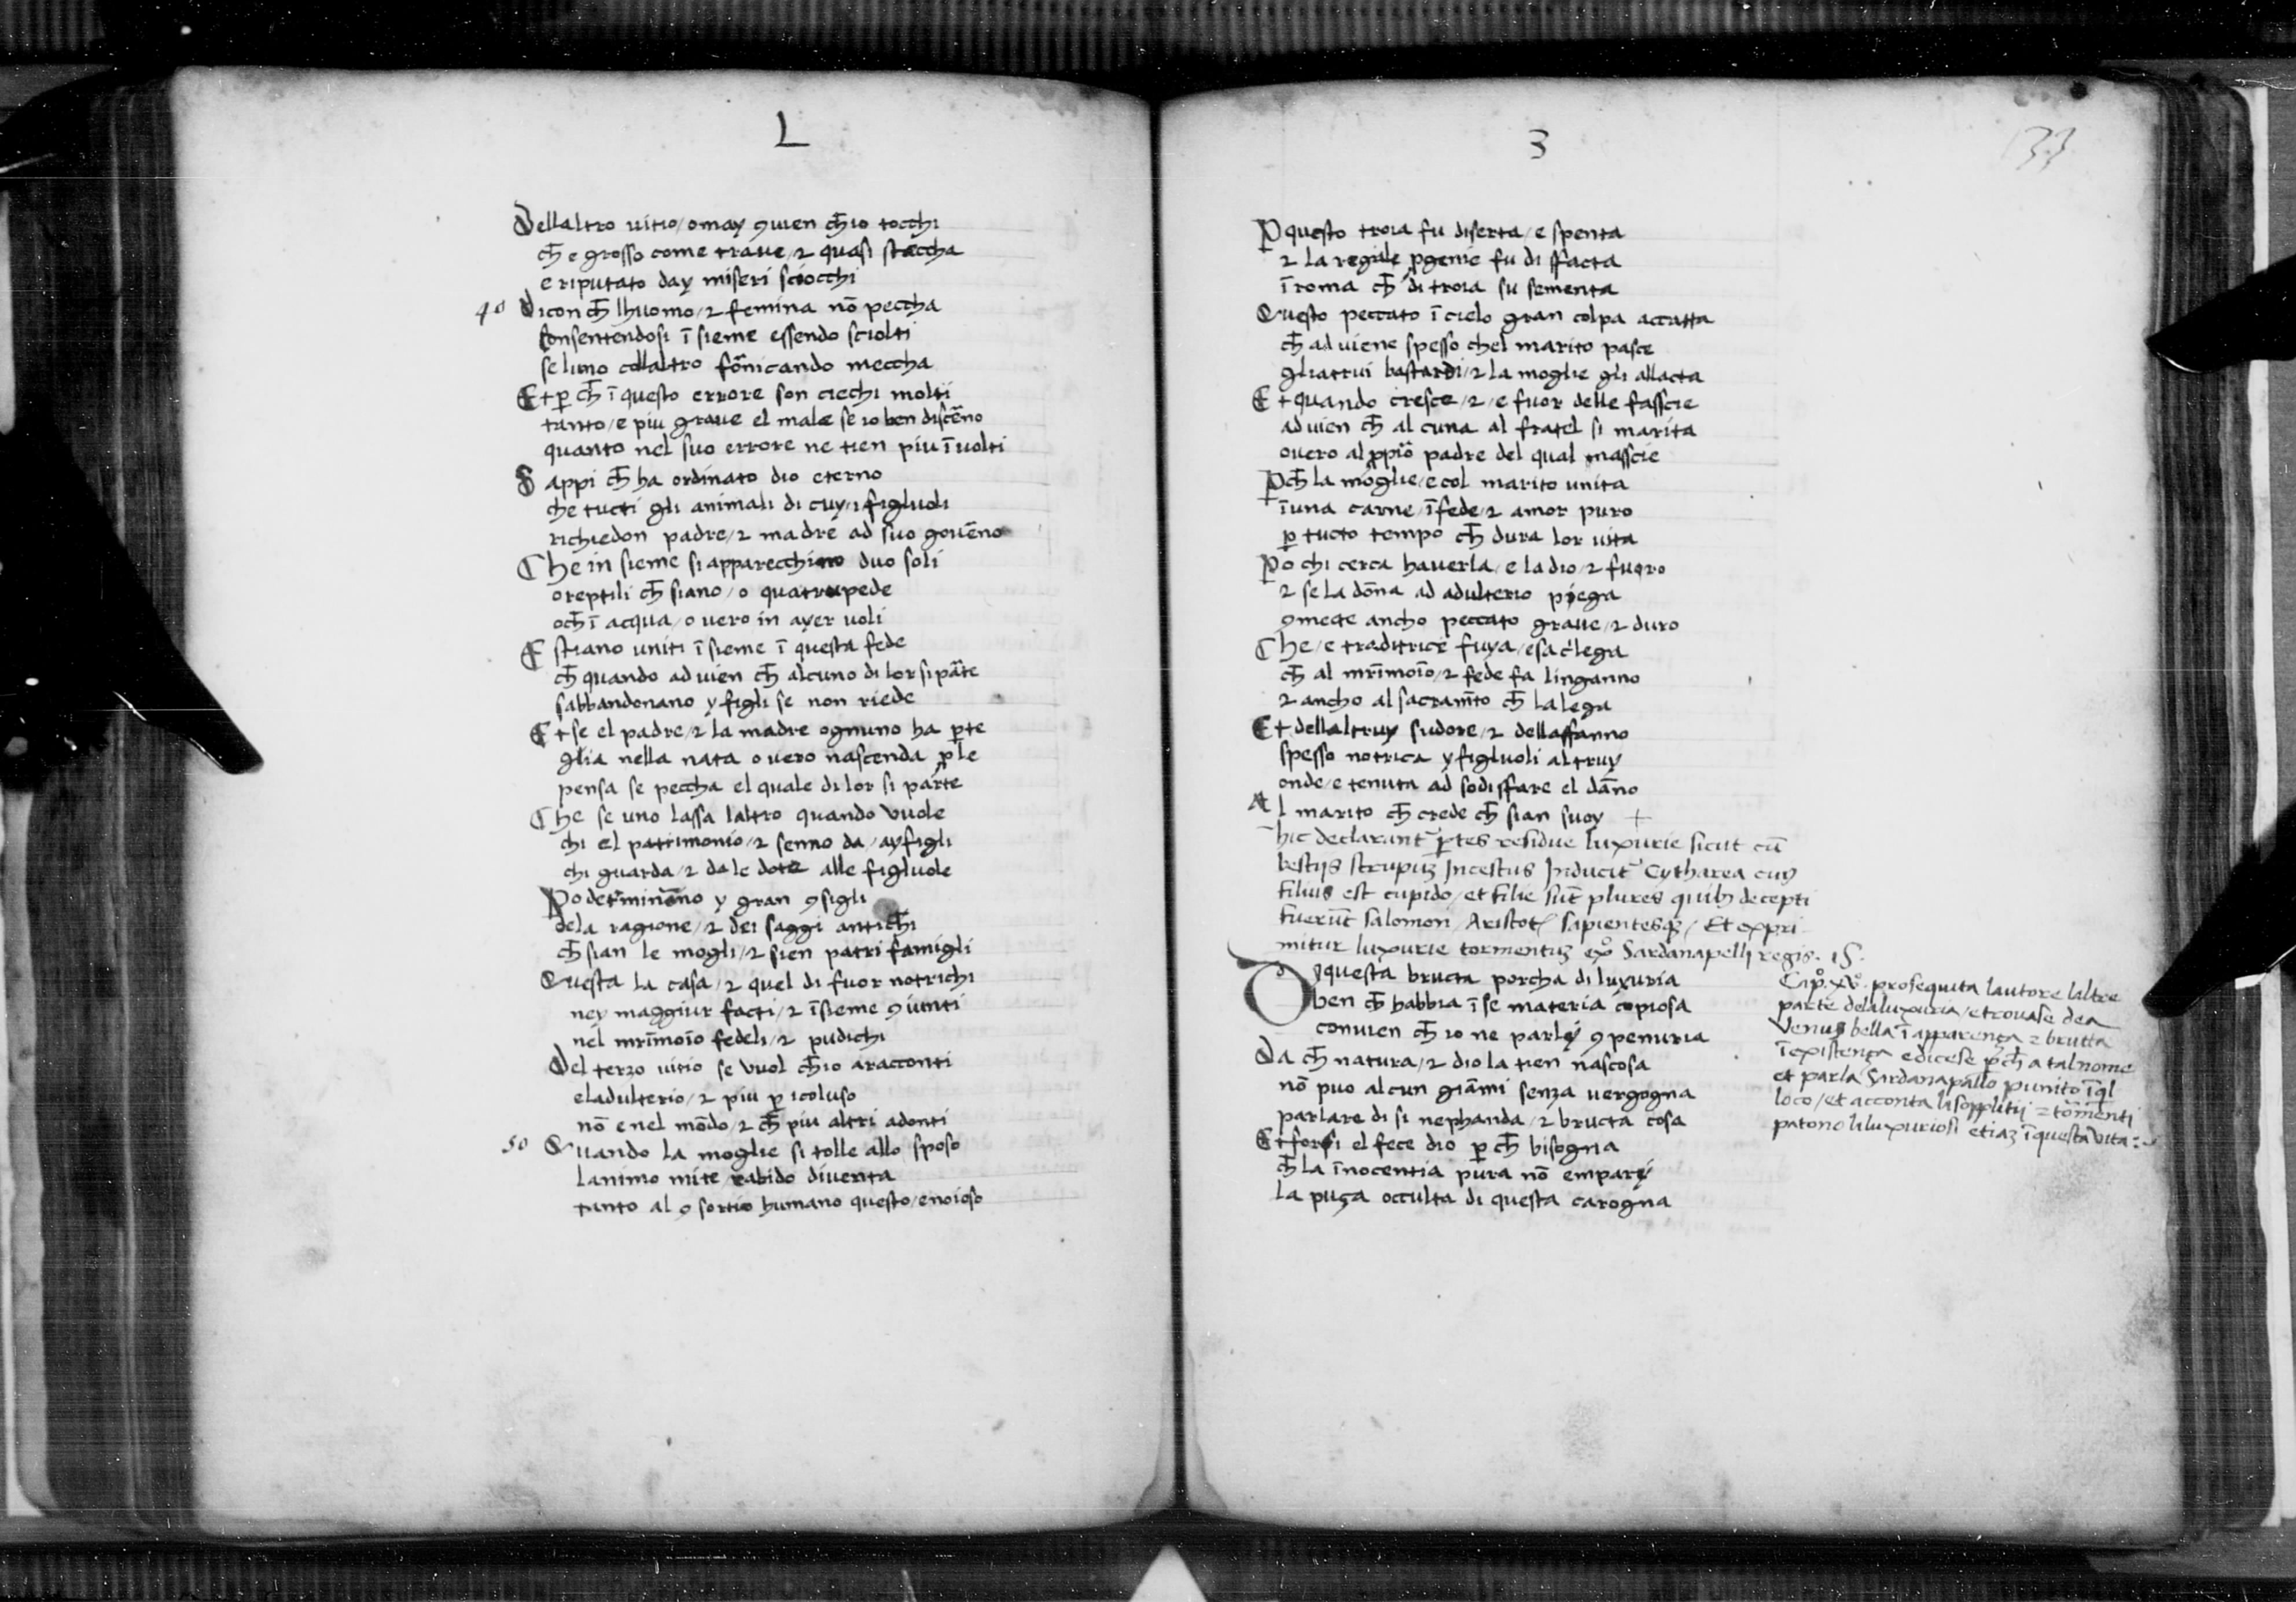 L
Dellaltro uitio / omay ꝯuien ch̄io tocchi
ch̄ e grosso come traue / ⁊ quasi staccha
e riputato day miseri sciocchi
40 Dicon ch̄ lhuomo / ⁊ femina nō peccha
consentendosi ī sieme essendo sciolti
se luno collaltro fōnicando meccha
Et ꝑ ch̄ ī questo errore son ciechi molti
tanto / e piu graue el male se io ben discēno
quanto nel suo errore ne tien piu īuolti
Sappi ch̄ ha ordinato dio eterno
che tucti gli animali di cuy / i figluoli
richiedon padre / ⁊ madre ad suo gouēno
Che in sieme si apparecchino duo soli
o reptili ch̄ siano / o quatrupede
och̄ ī acqua / o uero in ayer uoli
E stiano uniti ī sieme ī questa fede
ch̄ quando ad uien ch̄ alcuno di lor si pāte
sabbandonano y figli se non riede
Et se el padre / ⁊ la madre ognuno ha ꝑte
glia nella nata o uero nascenda ꝓle
pensa se peccha el quale di lor si parte
Che se uno lassa laltro quando vuole
chi el patrimonio / ⁊ senno da / ay figli
chi guarda / ⁊ da le dote alle figluole
Ꝑo det̄mināno y gran ꝯsigli
dela ragione / ⁊ dei saggi antichi
ch̄ sian le mogli / ⁊ sien patri famigli
Questa la casa / ⁊ quel di fuor notrichi
ney maggiur facti / ⁊ īsieme ꝯiunti
nel mr̄imoīo fedeli / ⁊ pudichi
Del terzo uitio se vuol ch̄io aracconti
eladulterio / ⁊ piu ꝑ icoluso
nō e nel mōdo / ⁊ ch̄ piu altri adonti
50 Quando la moglie si tolle allo sposo
lanimo mite rabido diuenta
tanto al ꝯsortio humano questo / enoioso
3
33
Ꝑ questo troia fu diserta / e spenta
⁊ la regale ꝓgenie fu di ffacta
ī roma ch̄ di troia fu sementa
Questo peccato ī cielo gran colpa accatta
ch̄ ad uiene spesso chel marito pasce
gli atrui bastardi / ⁊ la moglie gli allacta
Et quando cresce / ⁊ / e fuor delle fasscie
ad uien ch̄ al cuna al fratel si marita
ouero al ꝓpiō padre del qual nasscie
Ꝑch̄ la moglie / e col marito unita
ī una carne / ī fede / ⁊ amor puro
ꝑ tucto tempo ch̄ dura lor uita
Ꝑo chi cerca hauerla / e ladio / ⁊ fuoro
⁊ se la dōna ad adulterio piega
ꝯmecte ancho peccato graue / ⁊ duro
Che / e traditrice fuya / e sac̄lega
ch̄ al mr̄imoīo / ⁊ fede fa linganno
⁊ ancho al sacram̄to ch̄ la lega
Et dellaltruy sudore / ⁊ dellaffanno
spesso notrica y figluoli altruy
onde / e tenuta ad sodisffare el dāno
Al marito ch̄ crede ch̄ sian suoy +
hic declarant᷑ ꝑtes residue luxurie sicut cū
bestijs strupuꝫ Incestus Inducit᷑ Cytharea cuꝰ
filius est cupido / et filie sūt plures quibꝫ decepti
fuerūt salomon / Aristotꝭ sapientesqꝫ / Et expri
mitur luxurie tormentuꝫ exº Sardanapelli regis. 15.
Dquesta bructa porcha di luxuria
ben ch̄ habbia ī se materia copiosa
conuien ch̄ io ne parly ꝯ penuria
Da ch̄ natura / ⁊ dio la tien nascosa
nō puo alcun giāmi senza uergogna
parlare di si nephanda / ⁊ bructa cosa
Et forsi el fece dio ꝑ ch̄ bisogna
ch̄ la īnocentia pura nō empary
la puça occulta di questa carogna
Capº. xvº. prosequita lautore laltre
parte dela luxuria / et trouase dea
Venus bella ī apparença ⁊ brutta
ī existença e dicese ꝑch̄ a tal nome
et parla Sardanapallo punito īql̄
loco / et acconta li soppliti̇j ⁊ tōmenti
patono li luxuriosi etiaꝫ ī questa vita: